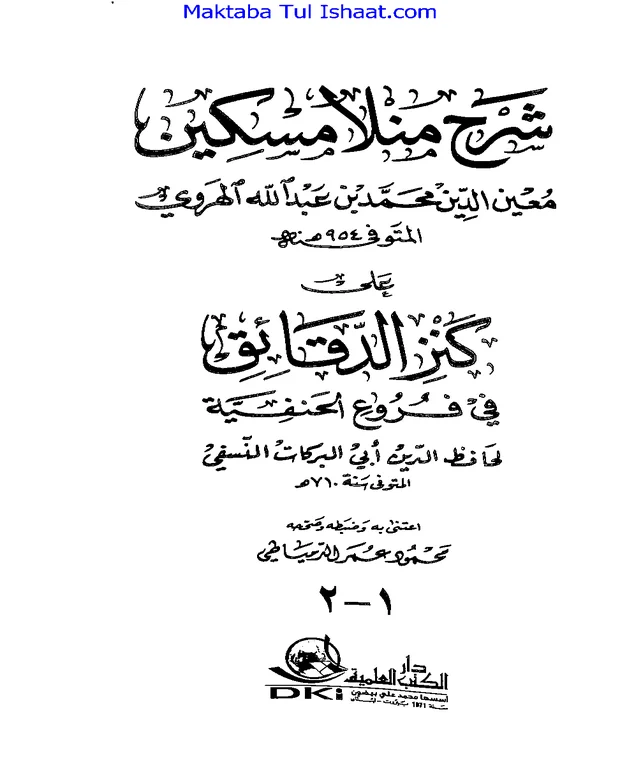 Maktaba Tul Ishaat.com
شرح منلا مسكين
معين الدين محمد بن عبد الله الهروي
المتوفى ٩٥٤ هـ
على
كنز الدقائق
في فروع الحنفية
لحافظ الدين أبي البركات النسفي
المتوفى سنة ٧١٠ هـ
اعتنى به وضبطه وصححه
محمود عمر الدمياطي
١ - ٢
دار
الكتب العلمية
DKi
أسسها محمد علي بيضون
سنة 1971 بيروت - لبنان